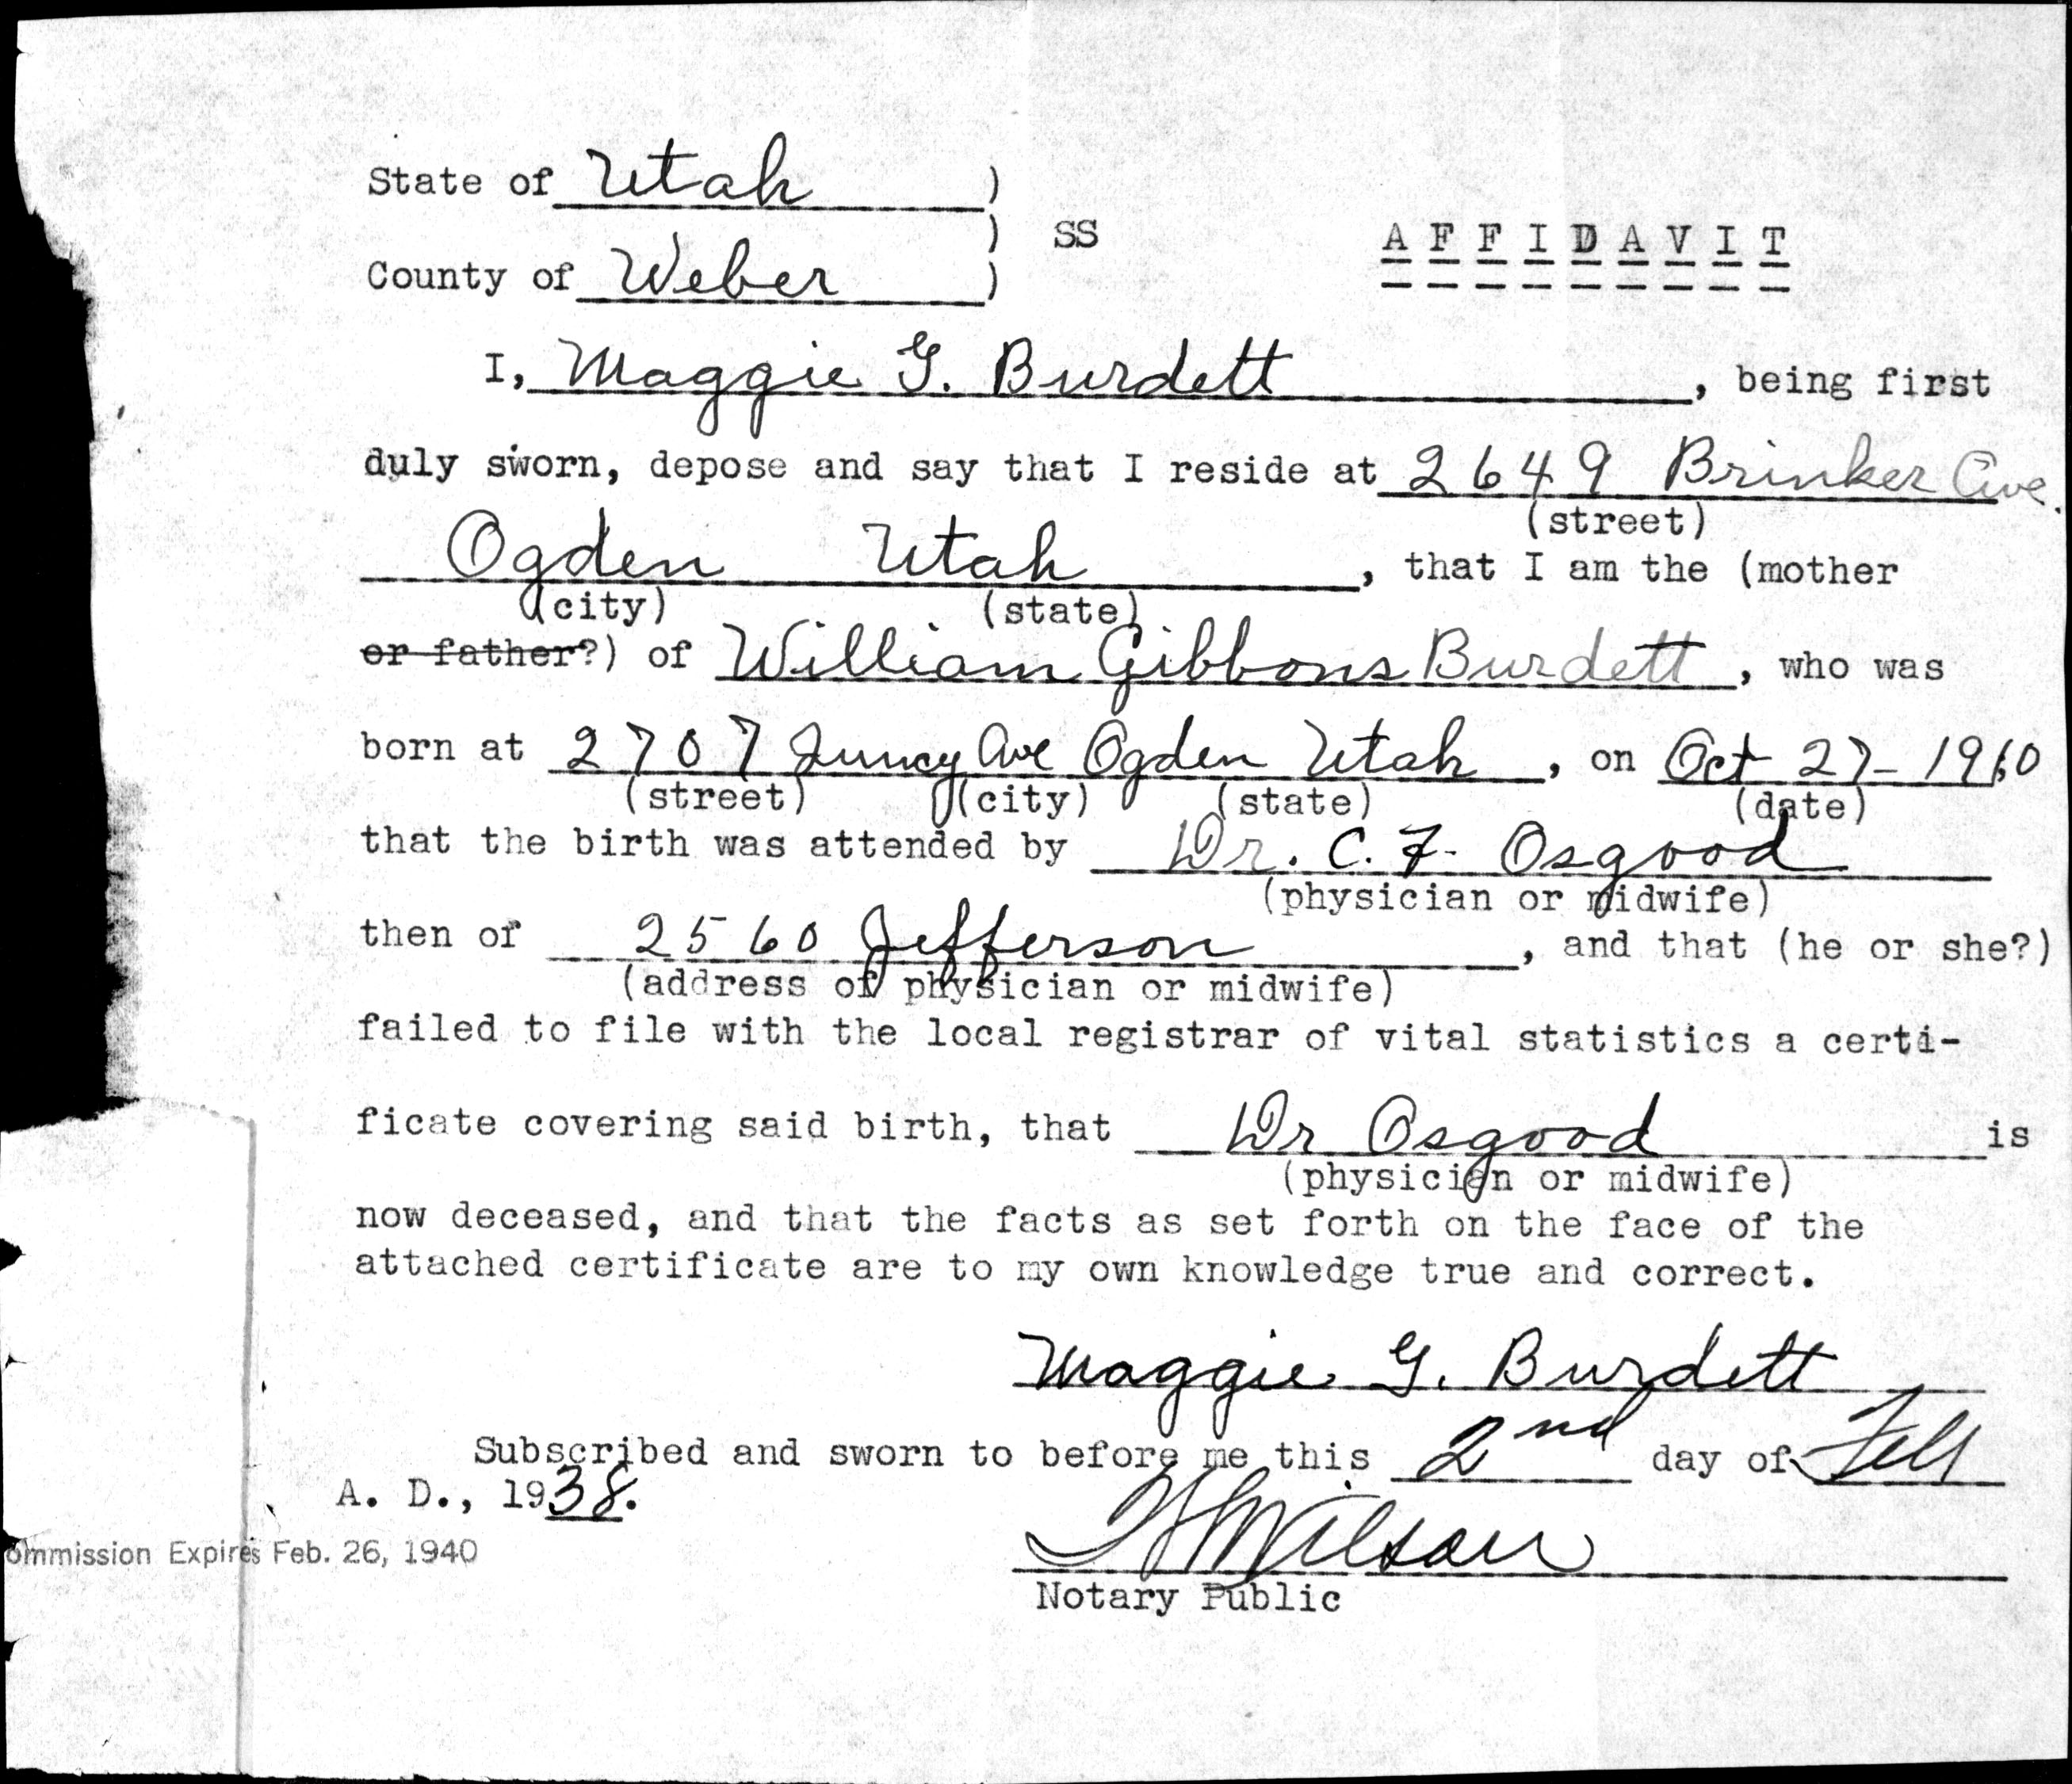 State of Utah )
) SS
AFFIDAVIT
County of Weber )
I, Maggie G. Burdett, being first
duly sworn, depose and say that I reside at 2649 Brinker Ave.
(street)
Ogden Utah, that I am the (mother
(city) (state)
or father?) of William Gibbons Burdett, who was
born at 2707 Ave Ogden Utah, on Oct 27-1910
(street) (city) (state) (date)
that the birth was attended by Dr. C. F. Osgood
(physician or midwife)
then of 2560 Jefferson, and that (he or she?)
(address of physician or midwife)
failed to file with the local registrar of vital statistics a certi-
ficate covering said birth, that Dr Osgood is
(physician or midwife)
now deceased, and that the facts as set forth on the face of the
attached certificate are to my own knowledge true and correct.
Maggie G. Burdett
Subscribed and sworn to before me this 2nd day of Feb
A. D., 1938.
ommission Expires Feb. 26, 1940
Wilson
Notary Public